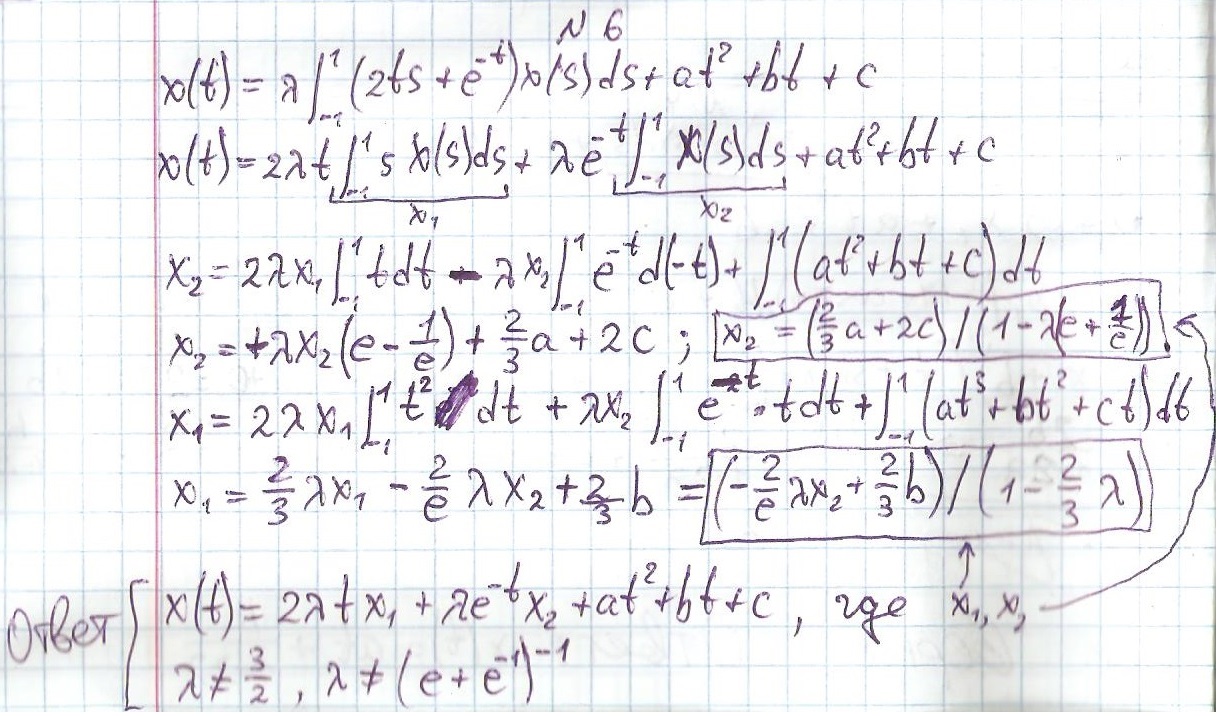 N 6
x(t) = λ∫₋₁¹(2ts + e⁻ᵗ)x(s)ds + at² + bt + c
x(t) = 2λt∫₋₁¹ s x(s)ds + λe⁻ᵗ∫₋₁¹ x(s)ds + at² + bt + c
x₁ x₂
x₂ = 2λx₁∫₋₁¹ tdt - λx₂∫₋₁¹ e⁻ᵗd(-t) + ∫₋₁¹(at² + bt + c)dt
x₂ = +λx₂(e - 1/e) + 2/3 a + 2c ; x₂ = (2/3 a + 2c)/(1 - λ(e + 1/e)).
x₁ = 2λx₁∫₋₁¹ t² dt + λx₂∫₋₁¹ e⁻ᵗ · tdt + ∫₋₁¹(at³ + bt² + ct)dt
x₁ = 2/3 λx₁ - 2/e λx₂ + 2/3 b = (-2/e λx₂ + 2/3 b)/(1 - 2/3 λ)
Ответ [ x(t) = 2λtx₁ + λe⁻ᵗx₂ + at² + bt + c , где x₁, x₂
λ ≠ 3/2 , λ ≠ (e + e⁻¹)⁻¹